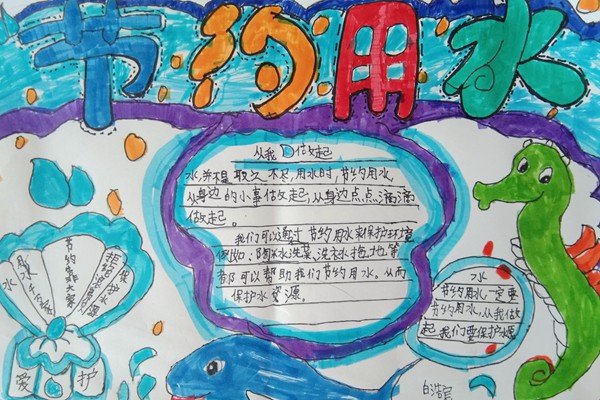 节约用水
从我做起
水,并不是取之不尽,用水时,节约用水,
从身边的小事做起,从身边点点滴滴
做起。
我们可以通过节约用水来保护环境
例如:淘米水洗菜,洗衣水拖地等
都可以帮助我们节约用水。从而
保护水资源。
水
节约用水一定要
节约用水,从我做
起我们要保护水源
节约靠大家
爱护